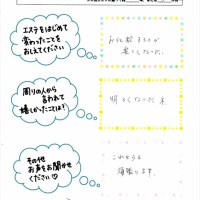 エステをはじめて
変わったことを
おしえてください
楽しくなった。
周りの人から
言われて
嬉しかったことは!
明るくなった
その他
お声をお聞かせ
ください♡
これからも
頑張ります。